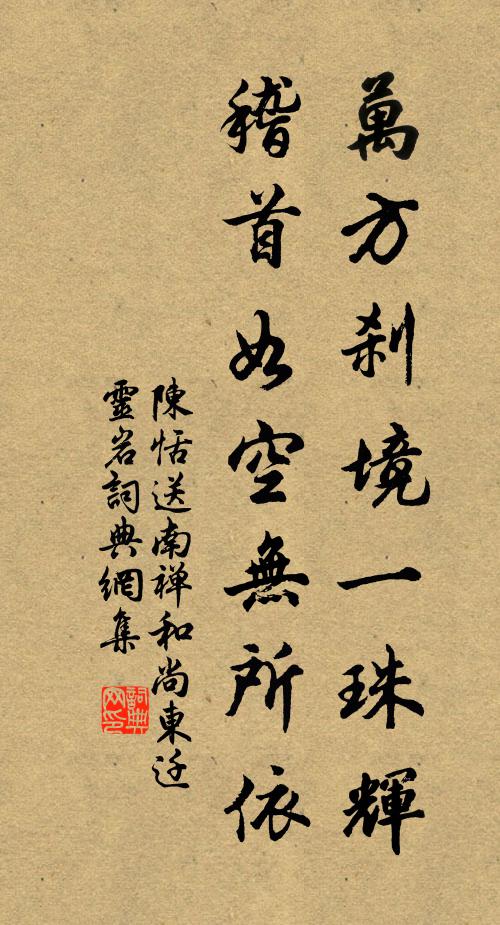 萬方刹境一珠輝
稽首如空無所依
陳恬送南禅和尚東迁
靈岩詞典網集
詞典
网印